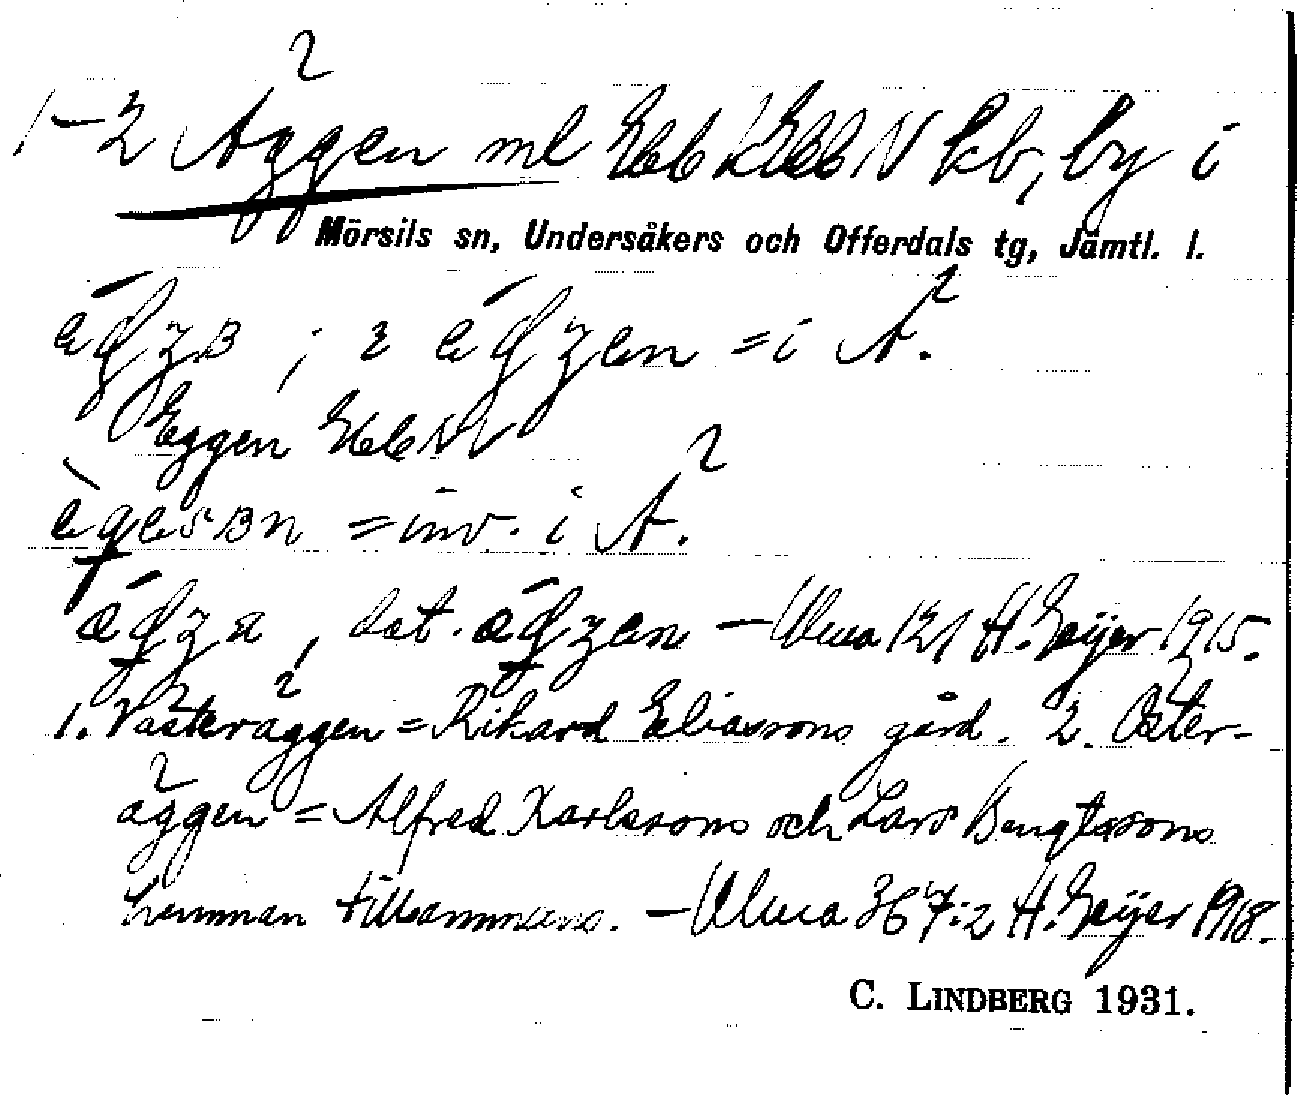 1-2 Äggen ml Ebb, kb, by i
Mörsils sn, Undersåkers och Offerdals tg, Jämtl. l.
; = i Ä.
Eggen
= inv. i Ä.
, dat. – Ulma 121 H. Geijer 1915.
1. Västeräggen = Rikard Eliassons gård. 2. Öster-
äggen = Alfred Karlssons och Lars Bengtssons
hemman tillsammans. – Ulma 367:2 H. Geijer 1918.
C. LINDBERG 1931.